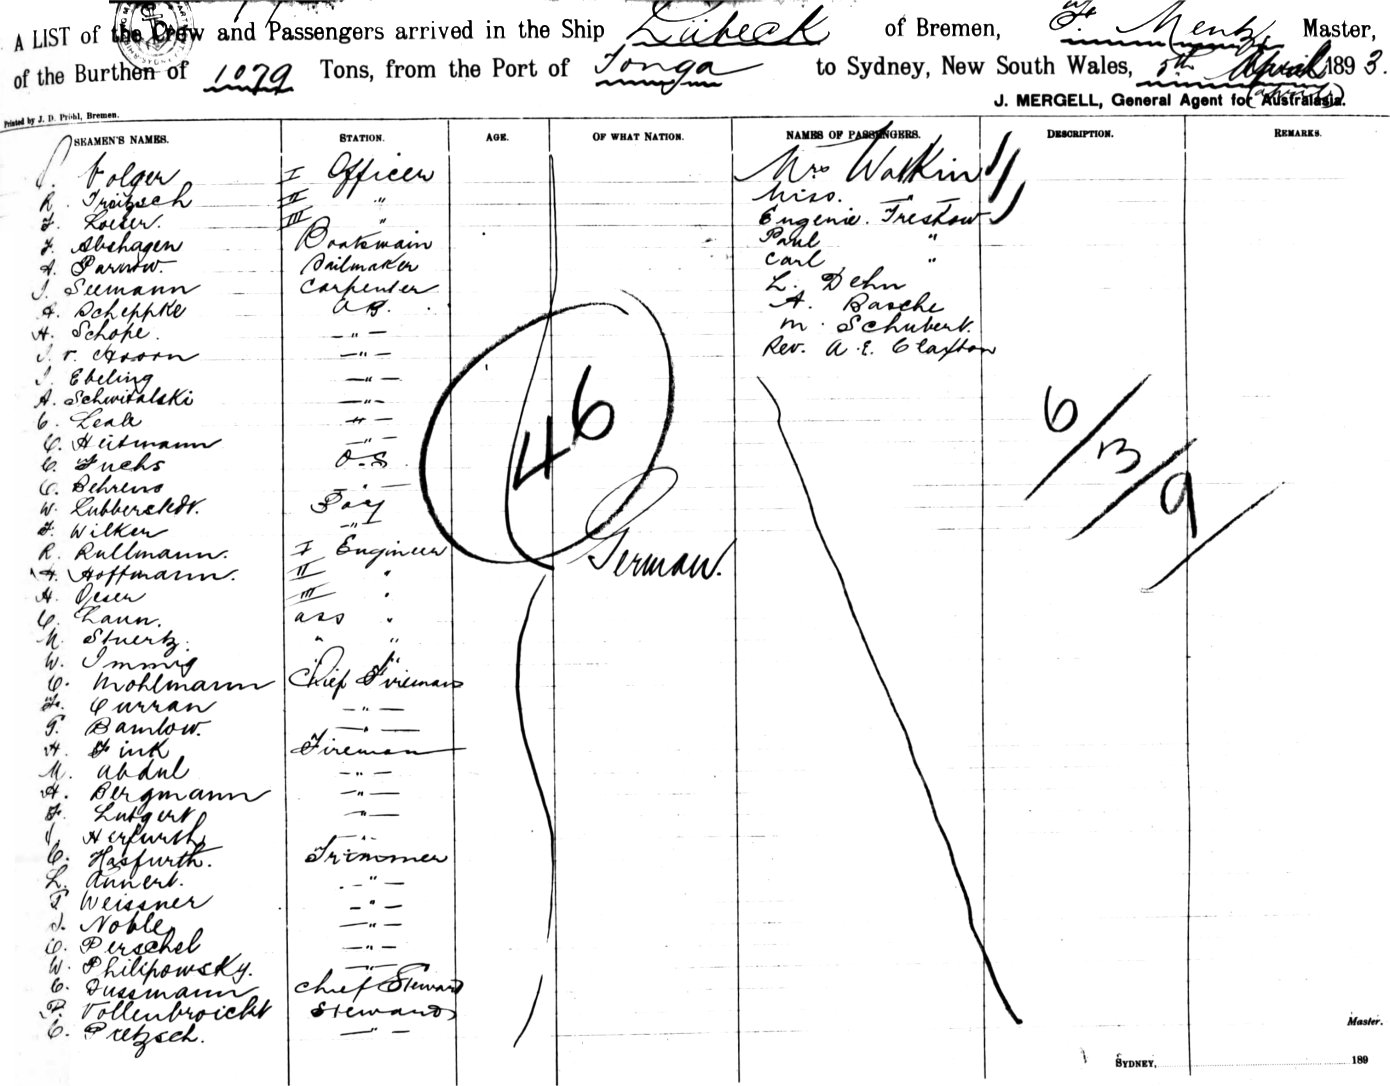 A LIST of the Crew and Passengers arrived in the Ship Lübeck of Bremen, F. Mentz, Master,
of the Burthen of 1079 Tons, from the Port of Tonga to Sydney, New South Wales, 5th April 1893.
J. MERGELL, General Agent for Australasia.
Printed by J. D. Pröhl, Bremen.
SEAMEN'S NAMES. STATION. AGE. OF WHAT NATION. NAMES OF PASSENGERS. DESCRIPTION. REMARKS.
Volger I Officer Mrs Watkin
R. Troitzsch II " Miss. — " —
F. Loeser. III " Eugenie. Treskow
F. Abshagen Boatswain Paul "
A. Parnow. Sailmaker Carl "
J. Seemann Carpenter L. Dehn
A. Scheppke A.B. A. Basche
H. Schope. — " — M. Schubert.
J. v. Hoorn — " — Rev. A. E. Claxton
J. Ebeling — " —
A. Schwitalski — " —
C. — " —
C. Heitmann — " —
C. Fuchs O.S.
C. Behrens — " —
W. Lubberstedt. Boy
F. Wilker — " —
R. Rullmann. I Engineer
A. Hoffmann. II "
H. Oeser III "
C. ass "
M. Stuertz. " "
W. Immig " "
C. Mohlmann Chief Fireman
F. Curran — " —
T. Bamlow. — " —
H. Fink Fireman
M. Abdul — " —
A. Bergmann — " —
F. Lutgert — " —
J. Herfurth — " —
C. Hasfurth. Trimmer
L. Annert. — " —
T. Weissner — " —
J. Noble — " —
C. Perschel — " —
W. Philipowsky. — " —
C. Dussmann Chief Steward
P. Vollenbroicht Steward
C. Pretzsch. — " —
46
German.
6/13/9
Master.
SYDNEY, 189